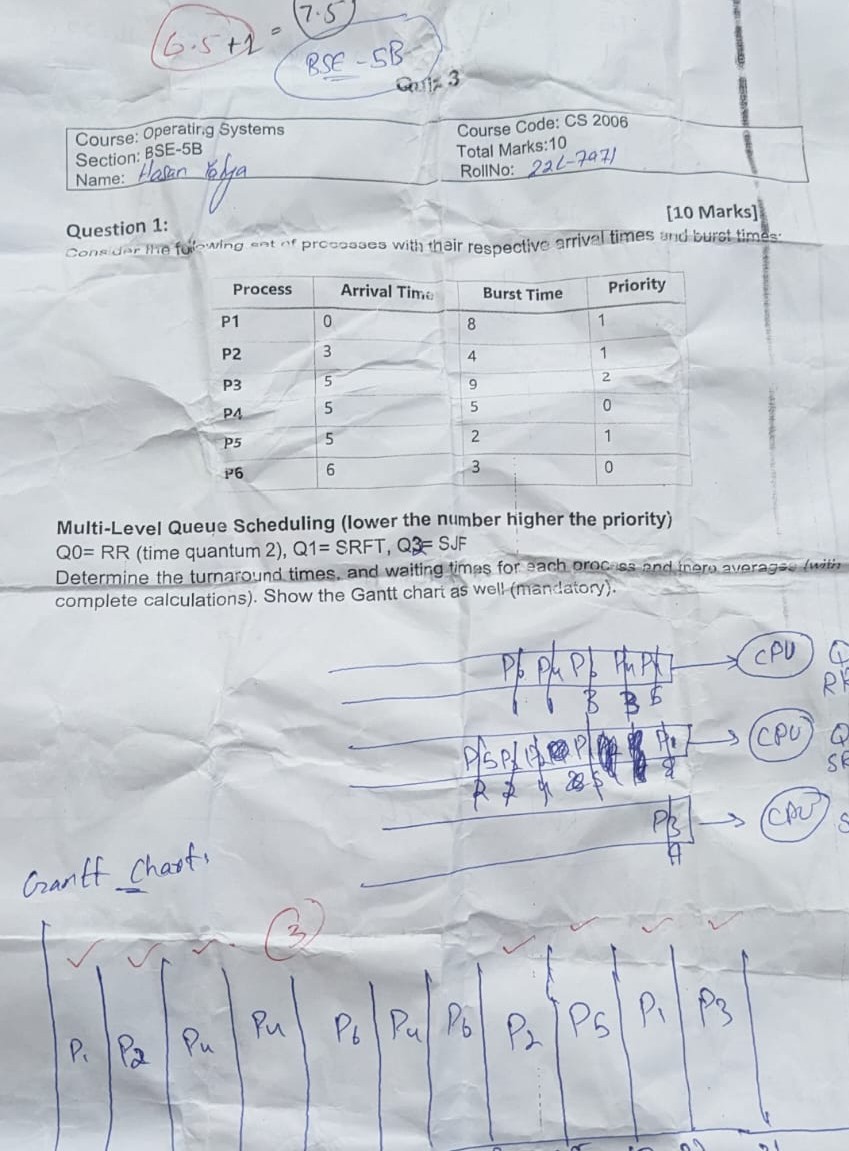 6.5+1 = 7.5
BSE - 5B
Quiz 3
Course: Operating Systems
Course Code: CS 2006
Section: BSE-5B
Total Marks:10
Name: Hasan Yahya
RollNo: 22L-7971
[10 Marks]
Question 1:
Consider the following set of processes with their respective arrival times and burst times:
Process Arrival Time Burst Time Priority
P1 0 8 1
P2 3 4 1
P3 5 9 2
P4 5 5 0
P5 5 2 1
P6 6 3 0
Multi-Level Queue Scheduling (lower the number higher the priority)
Q0= RR (time quantum 2), Q1= SRFT, Q3= SJF
Determine the turnaround times, and waiting times for each process and there averages (with
complete calculations). Show the Gantt chart as well (mandatory).
P6 P4 P6 P4 P4 CPU
CPU
P3 CPU
Grantt Chart,
3
P1 P2 P4 P4 P6 P4 P6 P2 P5 P1 P3